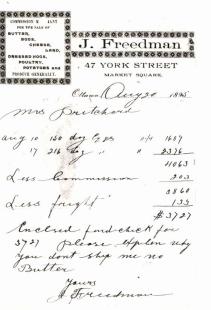 COMMISSION MERCHANT
FOR THE SALE OF
BUTTER,
EGGS,
CHEESE,
LARD,
DRESSED HOGS,
POULTRY,
POTATOES AND
PRODUCE GENERALLY.
J. Freedman
47 YORK STREET
MARKET SQUARE.
Ottawa Aug 20 1895
Mrs Pritchard
Aug 10 150 doz Eggs
17 216 doz " " 2376
Less Commission 203
3860
Less freight 133
$3727
Enclosed find check for
3727 please explain why
you dont ship me no
Butter
Yours
J Freedman